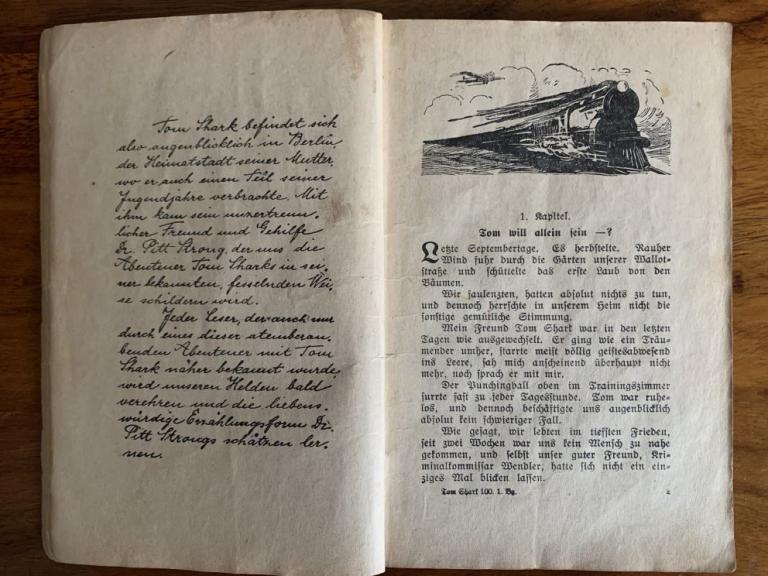 Tom Shark befindet sich
also augenblicklich in Berlin,
der Heimatstadt seiner Mutter,
wo er auch einen Teil seiner
Jugendjahre verbrachte. Mit
ihm kam sein unzertrenn-
licher Freund und Gehilfe
Dr. Pitt Strong, der uns die
Abenteuer Tom Sharks in sei-
ner bekannten, fesselnden Wei-
se schildern wird.
Jeder Leser, der auch nur
durch eines dieser atemberau-
benden Abenteuer mit Tom
Shark näher bekannt wurde,
wird unseren Helden bald
verehren und die liebens-
würdige Erzählungsform Dr.
Pitt Strongs schätzen ler-
nen.
1. Kapitel.
Tom will allein sein —?
Letzte Septembertage. Es herbstelte. Rauher
Wind fuhr durch die Gärten unserer Wallot-
straße und schüttelte das erste Laub von den
Bäumen.
Wir faulenzten, hatten absolut nichts zu tun,
und dennoch herrschte in unserem Heim nicht die
sonstige gemütliche Stimmung.
Mein Freund Tom Shark war in den letzten
Tagen wie ausgewechselt. Er ging wie ein Träu-
mender umher, starrte meist völlig geistesabwesend
ins Leere, sah mich anscheinend überhaupt nicht
mehr, noch sprach er mit mir.
Der Punchingball oben im Trainingszimmer
surrte fast zu jeder Tagesstunde. Tom war ruhe-
los, und dennoch beschäftigte uns augenblicklich
absolut kein schwieriger Fall.
Wie gesagt, wir lebten im tiefsten Frieden,
seit zwei Wochen war uns kein Mensch zu nahe
gekommen, und selbst unser guter Freund, Kri-
minalkommissar Wendler, hatte sich nicht ein ein-
ziges Mal blicken lassen.
Tom Shark 100. 1. Bg.